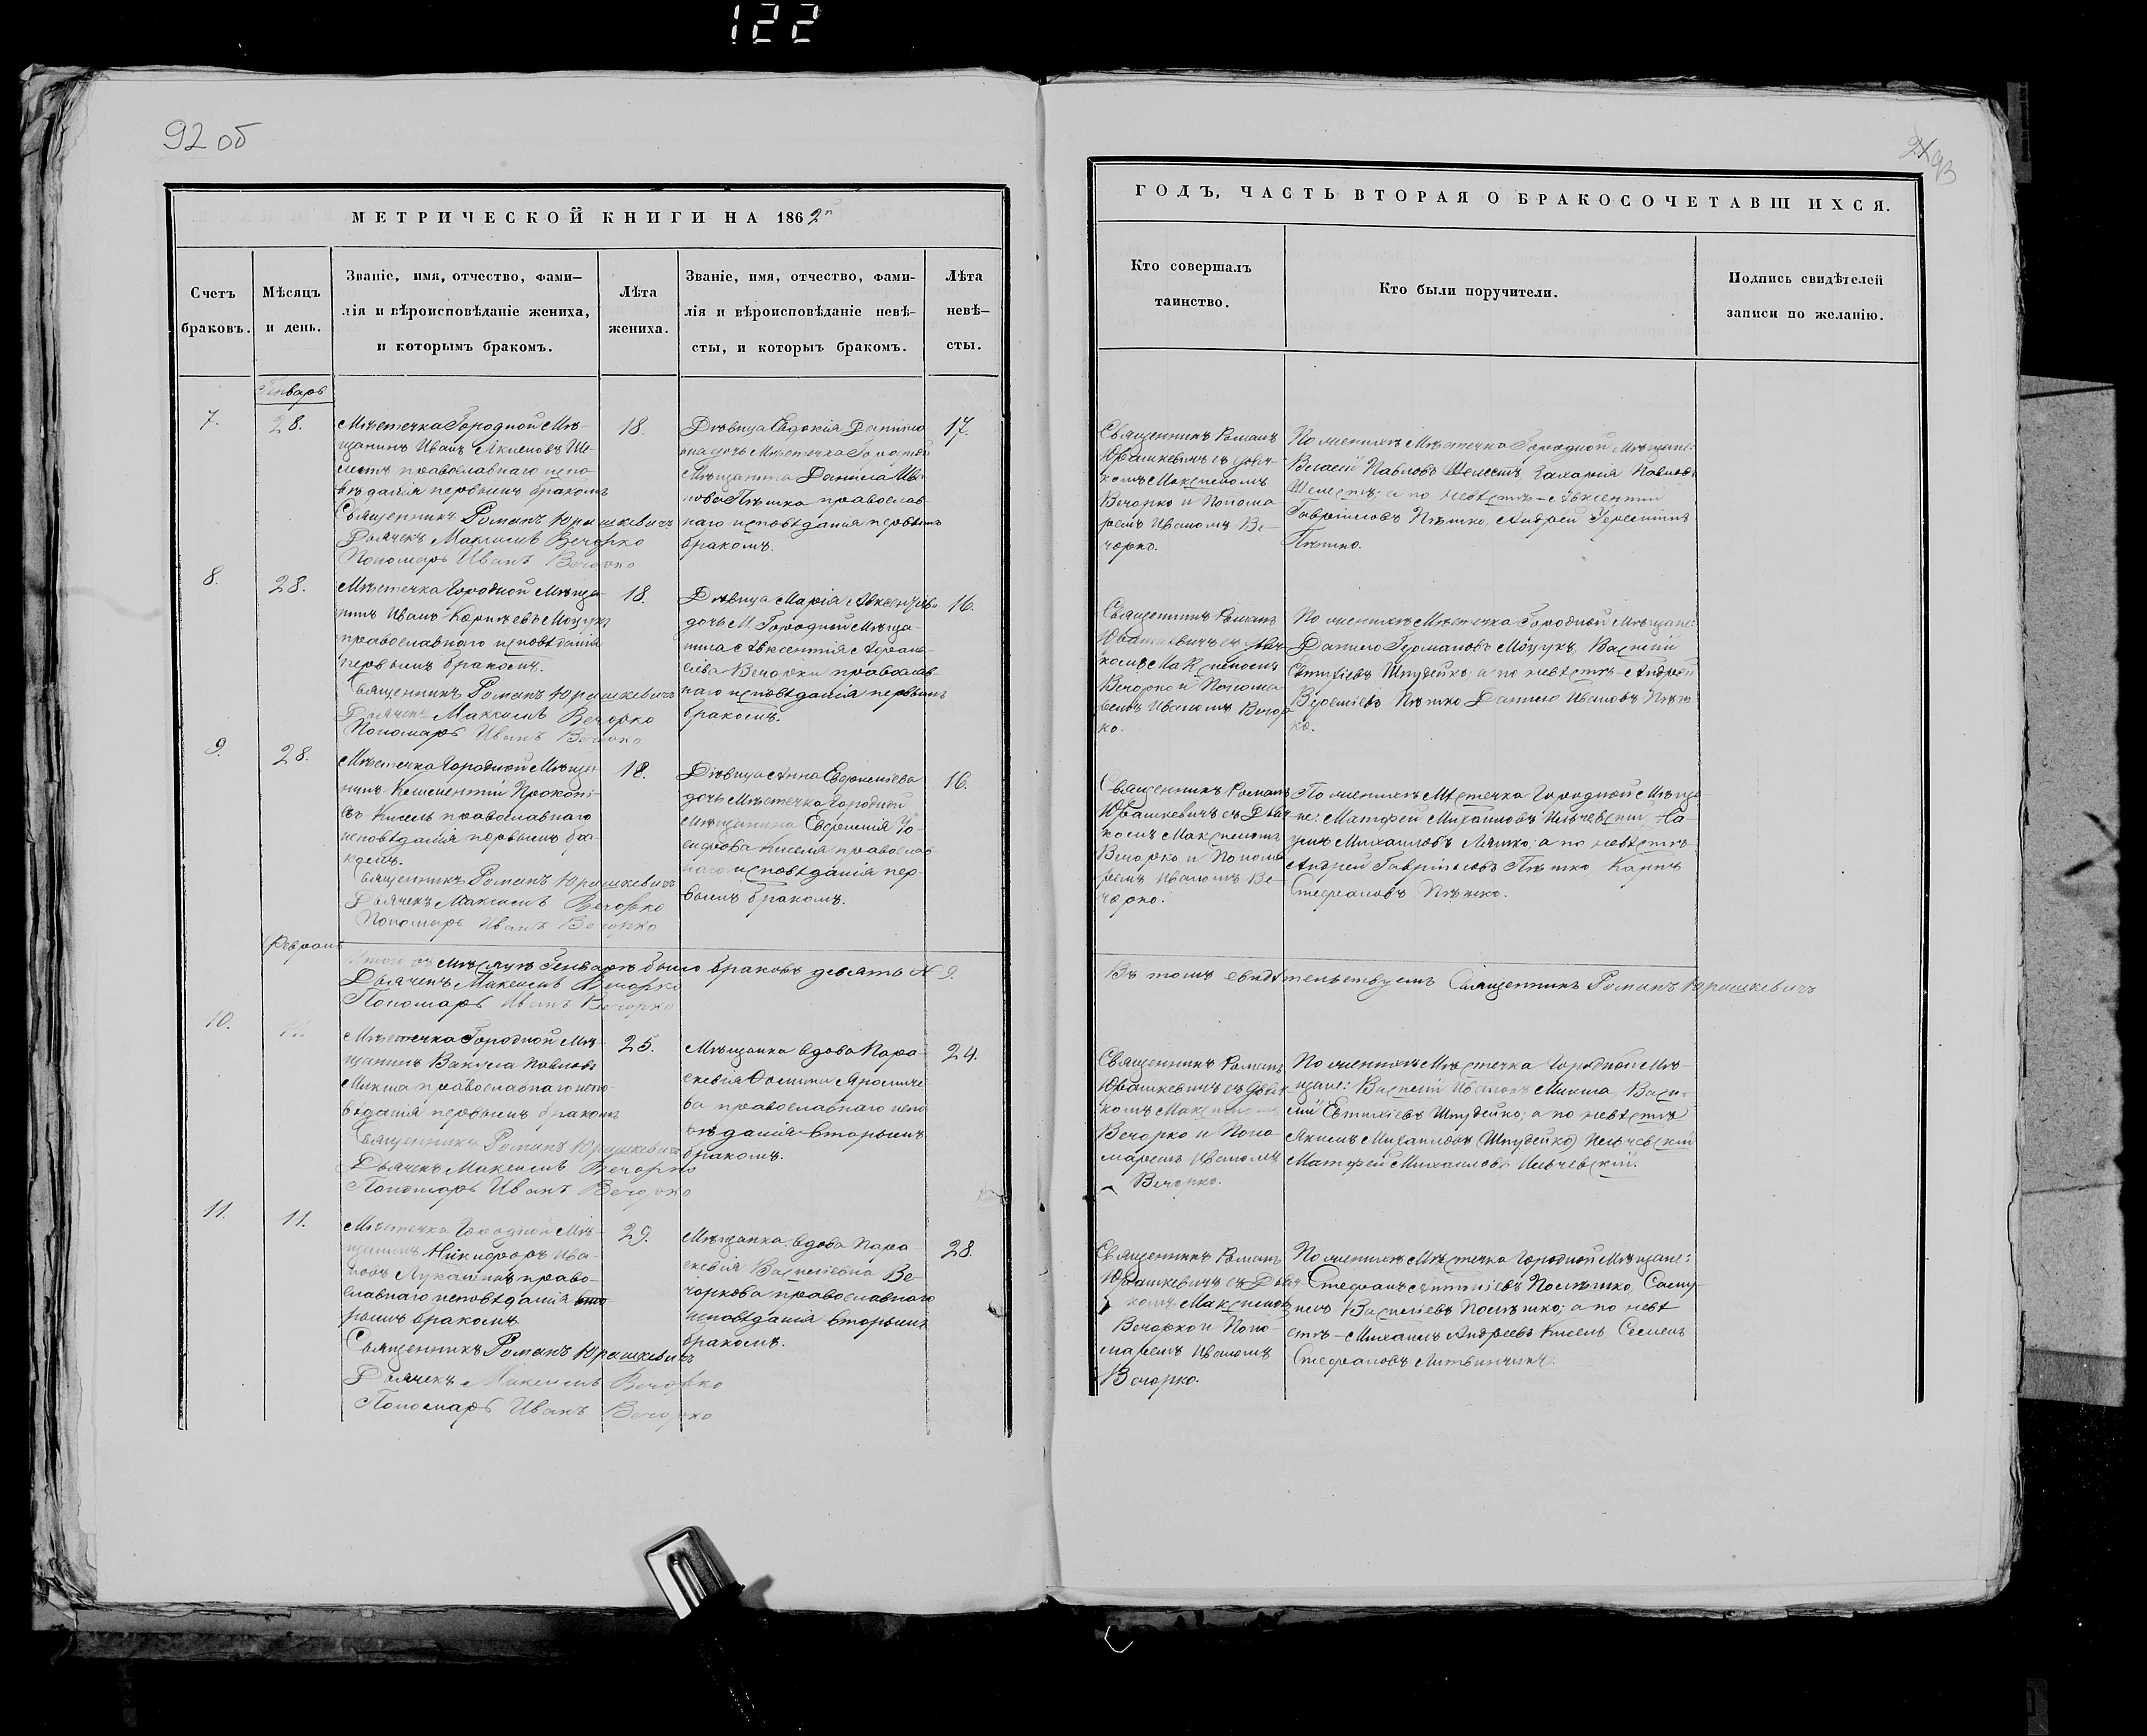 122
92 об
93
МЕТРИЧЕСКОЙ КНИГИ НА 1862
ГОДЪ, ЧАСТЬ ВТОРАЯ О БРАКОСОЧЕТАВШИХСЯ.
Счетъ
браковъ.
Мѣсяцъ
и день.
Званіе, имя, отчество, фами-
лія и вѣроисповѣданіе жениха,
и которымъ бракомъ.
Лѣта
жениха.
Званіе, имя, отчество, фами-
лія и вѣроисповѣданіе невѣ-
сты, и которыъ бракомъ.
Лѣта
невѣ-
сты.
Кто совершалъ
таинство.
Кто были поручители.
Подпись свидѣтелей
записи по желанію.
Генварь
7.
28.
Мѣстечка Городной Мѣ-
щанинъ Иванъ
православнаго испо-
вѣданія первымъ бракомъ
Священникъ Романъ Юрашкевичъ
Дьячекъ Максимъ Вечорко
Пономарь Иванъ Вечорко
18.
Дѣвица Евдокія Данило
дочь Мѣстечка Городной
Мѣщанина Данила Ива
нова Пѣшка православ-
наго исповѣданія первымъ
бракомъ.
17.
Священникъ Романъ
Юрашкевичъ съ Дьяч-
комъ Максимомъ
Вечорко и Понома
ремъ Иваномъ Ве-
чорко.
По женихѣ Мѣстечка Городной Мѣщане:
Павловъ Шелестъ, Захарія Павловъ
Шелестъ; а по невѣстѣ – Авксентий
Гавріиловъ Пѣшко, Андрей
Пѣшко.
8.
28.
Мѣстечка Городной Мѣща-
нинъ Иванъ Моцукъ
православнаго исповѣданія
первымъ бракомъ.
Священникъ Романъ Юрашкевичъ
Дьячекъ Максимъ Вечорко
Пономарь Иванъ Вечорко
18.
Дѣвица Марія
дочь М. Городной Мѣща-
нина Авксентія
Вечорки православ-
наго исповѣданія первымъ
бракомъ.
16.
Священникъ Романъ
Юрашкевичъ съ Дьяч
комъ Максимомъ
Вечорко и Понома
ремъ Иваномъ Вечор
ко.
По женихѣ Мѣстечка Городной Мѣщане:
Данило Германовъ Моцукъ, Василій
Шпудейко; а по невѣстѣ – Андрей
Пѣшко Данило Ивановъ Пѣш
ко.
9.
28.
Мѣстечка Городной Мѣща-
нинъ Климентій Прокопі-
въ Кисель православнаго
исповѣданія первымъ бра-
комъ.
Священникъ Романъ Юрашкевичъ
Дьячекъ Максимъ Вечорко
Пономарь Иванъ Вечорко
18.
Дѣвица Анна
дочь Мѣстечка Городной
Мѣщанина
Киселя православ-
наго исповѣданія пер-
вымъ бракомъ.
16.
Священникъ Романъ
Юрашкевичъ съ Дьяч
комъ Максимомъ
Вечорко и Понома
ремъ Иваномъ Ве-
чорко.
По женихѣ Мѣстечка Городной Мѣща-
не: Матфей Михаиловъ Ильчевскій, На-
умъ Михаиловъ Ляшко; а по невѣстѣ
Андрей Гавріиловъ Пѣшко Карпъ
Стефановъ Пѣшко.
Февраль
Итого въ Мѣсяцѣ Генварѣ было браковъ девять № 9.
Дьячекъ Максимъ Вечорко
Пономарь Иванъ Вечорко
Въ томъ свидѣтельствуемъ Священникъ Романъ Юрашкевичъ
10.
11.
Мѣстечка Городной Мѣ-
щанинъ Вакула Павловъ
Микша православнаго испо-
вѣданія первымъ бракомъ
Священникъ Романъ Юрашкевичъ
Дьячекъ Максимъ Вечорко
Пономарь Иванъ Вечорко
25.
Мѣщанка вдова Пара-
скевія
ва православнаго испо
вѣданія вторымъ
бракомъ.
24.
Священникъ Романъ
Юрашкевичъ съ Дьяч
комъ Максимомъ
Вечорко и Поно-
маремъ Иваномъ
Вечорко.
По женихѣ Мѣстечка Городной Мѣ-
щане: Василій Ивановъ Микша, Васи-
лій Евтихіевъ Шпудейко; а по невѣстѣ
Якимъ Михаиловъ (Шпудейко) Ильчевскій
Матфей Михаиловъ Ильчевскій.
11.
11.
Мѣстечка Городной Мѣ-
щанинъ Никифоръ Ива-
новъ право-
славнаго исповѣданія вто
рымъ бракомъ
Священникъ Романъ Юрашкевичъ
Дьячекъ Максимъ Вечорко
Пономарь Иванъ Вечорко
29.
Мѣщанка вдова Пара-
скевія Василіевна Ве-
чоркова православнаго
исповѣданія вторымъ
бракомъ.
28.
Священникъ Романъ
Юрашкевичъ съ Дьяч-
комъ Максимомъ
Вечорко и Поно-
маремъ Иваномъ
Вечорко.
По женихѣ Мѣстечка Городной Мѣщане:
Стефанъ Полѣшко, Саму
илъ Василіевъ Полѣшко; а по невѣ
стѣ – Михаилъ Андреевъ Кисель Семенъ
Стефановъ Литвинчукъ.